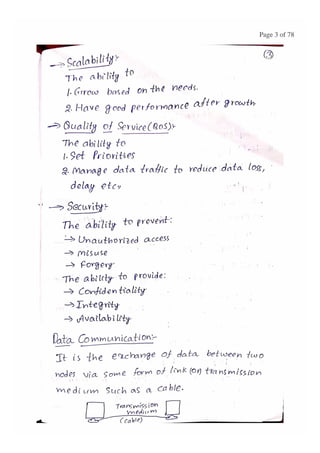 Page 3 of 78
③
→ Scalability:-
The ability to
1. Grow based on the needs.
2. Have good performance after growth
→ Quality of Service(QoS):-
The ability to
1. Set Priorities
2. Manage data traffic to reduce data loss,
delay etc.,
→ Security:-
The ability to prevent:
→ Unauthorized access
→ misuse
→ Forgery
The ability to provide:
→ Confidentiality
→ Integrity
→ Availability
Data Communication:-
It is the exchange of data between two
nodes via some form of link (or) transmission
medium such as a cable.
Transmission
medium
(cable)